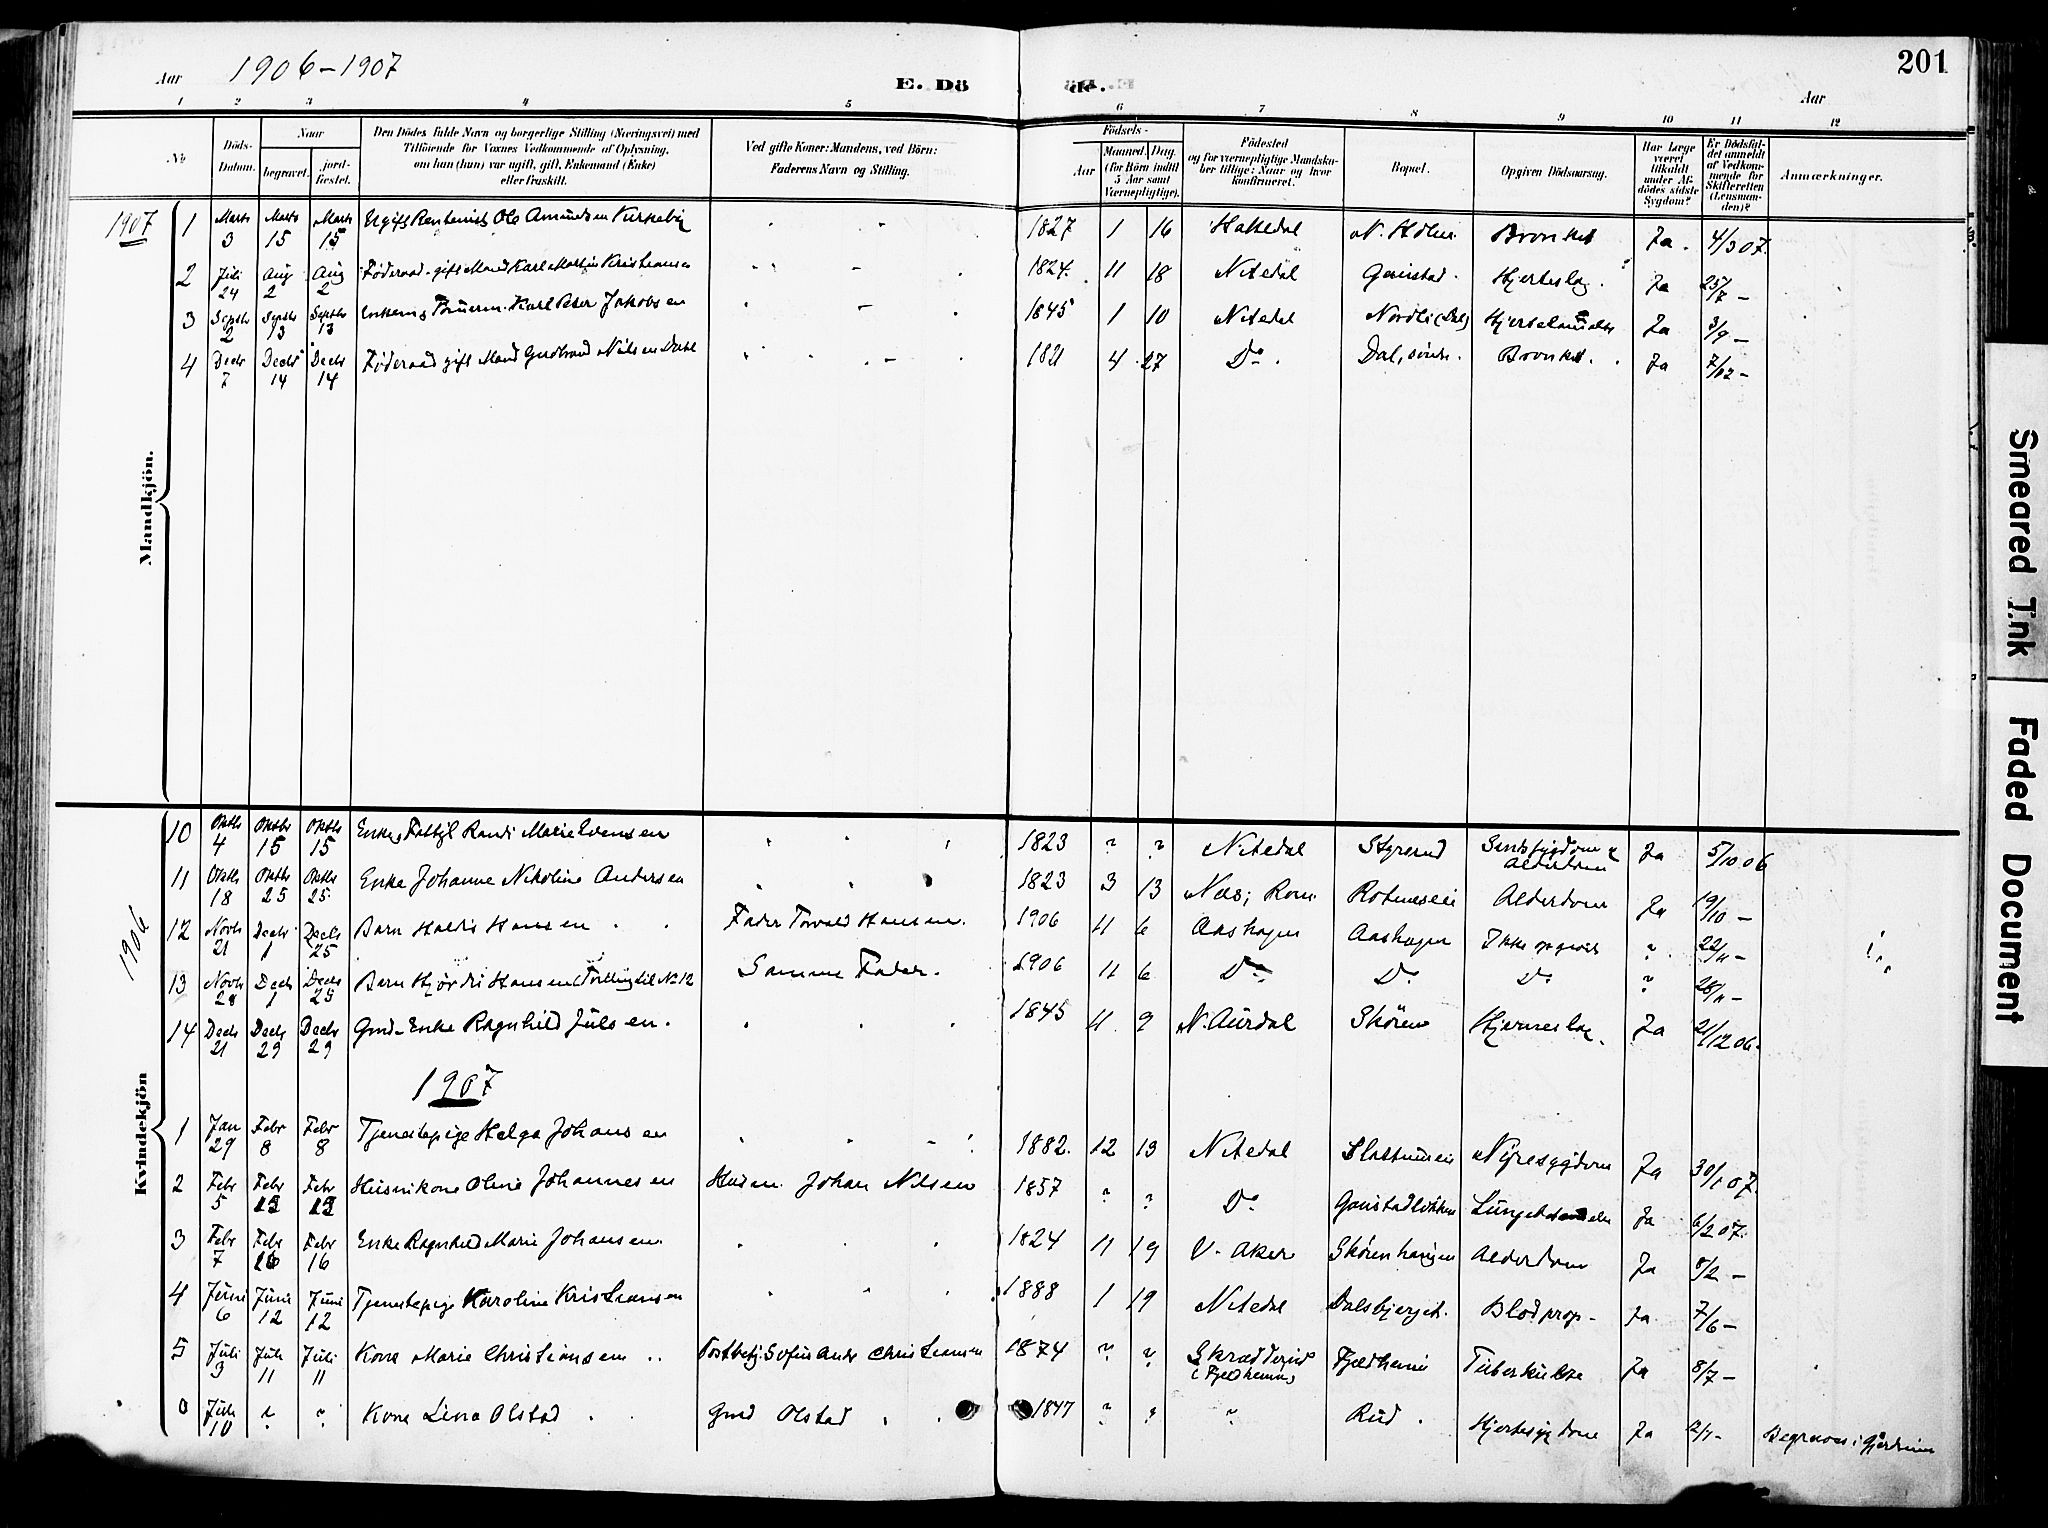 Aar 1906-1907
E. Döde.
201
Aar
1 2 3 4 5 6 7 8 9 10 11 12
No
Döds-Datum.
Naar
begravet.
jordfæstet.
Den Dödes fulde Navn og borgerlige Stilling (Næringsvei) med
Tilföiende för Voxnes Vedkommende af Oplysning,
om han (hun) var ugift, gift, Enkemand (Enke)
eller fraskilt.
Ved gifte Koner: Mandens, ved Börn:
Faderens Navn og Stilling.
Födsels-
Aar
Maaned.
Dag.
(for Börn indtil
5 Aar samt
Værnepligtige).
Födested
og for værnepligtige Mandskaber
tillige: Naar og hvor
konfirmeret.
Bopæl.
Opgiven Dödsaarsag.
Har Læge
været
tilkaldt
under Afdödes
sidste
Sygdom?
Er Dödsfaldet
anmeldt
af Vedkommende
for
Skifteretten
(Lensmanden)?
Anmærkninger.
Mandkjön.
1907
1 Marts 3 Marts 15 Marts 15 Ugift Rentenist Ole Amundsen Kirkeby 1827 1 16 Hakedal N. Holm Bronkit Ja. 4/3 07.
2 Juli 24 Aug 2 Aug 2 Föderaad. gift Mand Karl Martin Kristiansen 1824. 11 18 Nitedal Gaustad. Hjerteslag. Ja 25/7 -
3 Septbr 2 Septbr 13 Septbr 13 Enkem. Karl Peter Jakobsen 1845 1 10 Nitedal Nordli (Dal) Ja 3/9 -
4 Decbr 7 Decbr 14 Decbr 14 Föderaad gift Mand Gudbrand Nilsen Dahl 1821 4 27 Do. Dal, söndre. Bronkit. Ja 7/12 -
Kvindekjön
1906
10 Oktbr 4 Oktbr 15 Oktbr 15 Enke, Fattigl Randi Marie Evensen 1823 ? ? Nitedal Styrerud Alderdom Ja 5/10 06
11 Oktbr 18 Oktbr 25 Oktbr 25. Enke Johanne Nikoline Andersen 1823 3 13 Næs; Rom. Rotneseie Alderdom Ja 19/10 -
12 Novbr 21 Decbr 1 Decbr 25 Barn Haldis Hansen Fader Torvald Hansen. 1906 11 6 Aashagen Aashagen Ikke opgivet ? 22/11 -
13 Novbr 28 Decbr 1 Decbr 25 Barn Hjördis Hansen (Tvilling til No 12 Samme Fader. 1906 11 6 Do Do Do ? 28/11 -
14 Decbr 21 Decbr 29 Decbr 29 Gmd-Enke Ragnhild Julsen. 1845 11 9 N. Aurdal Skören Ja 21/12 06.
1907
1 Jan 29 Febr 8 Febr 8 Tjenestepige Helga Johansen 1882. 12 13 Nitedal Slattumeie Nyresygdom Ja 30/1 07.
2 Febr 5 Febr 12 Febr 12 Husmkone Oline Johannesen Husm. Johan Nilsen 1857 ? ? Do Gaustadlökken Lungebetændelse Ja 6/2 07.
3 Febr 7 Febr 16 Febr 16 Enke Ragnhild Marie Johansen 1824 11 19 V. Aker Skörenhaugen Alderdom Ja 8/2 -
4 Juni 6 Juni 12 Juni 12 Tjenestepige Karoline Kristiansen 1888 1 19 Nitedal Dalsbjerget. Blodprop- Ja. 7/6 -
5 Juli 3 Juli 11 Juli 11 Kone Marie Christiansen Postbetj. Sofus Andr Christiansen 1874 ? ? Fjeldheim Tuberkulose Ja 8/7 -
0 Juli 10 ? ? Kone Lina Olstad Gmd Olstad 1847 ? ? ? Rud. Hjertesygdom Ja Begraves i Gjerdrum
Smeared Ink
Faded Document